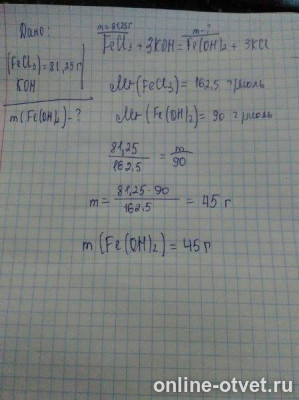 Дано:
(FeCl₃) = 81,25 г
KOH
m(Fe(OH)₂) - ?
m = 81,25г m - ?
FeCl₃ + 3KOH = Fe(OH)₂ + 3KCl
Mr (FeCl₃) = 162,5 г/моль
Mr (Fe(OH)₂) = 90 г/моль
81,25 / 162.5 = m / 90
m = 81,25 · 90 / 162.5 = 45 г
m (Fe(OH)₂) = 45г
online-otvet.ru